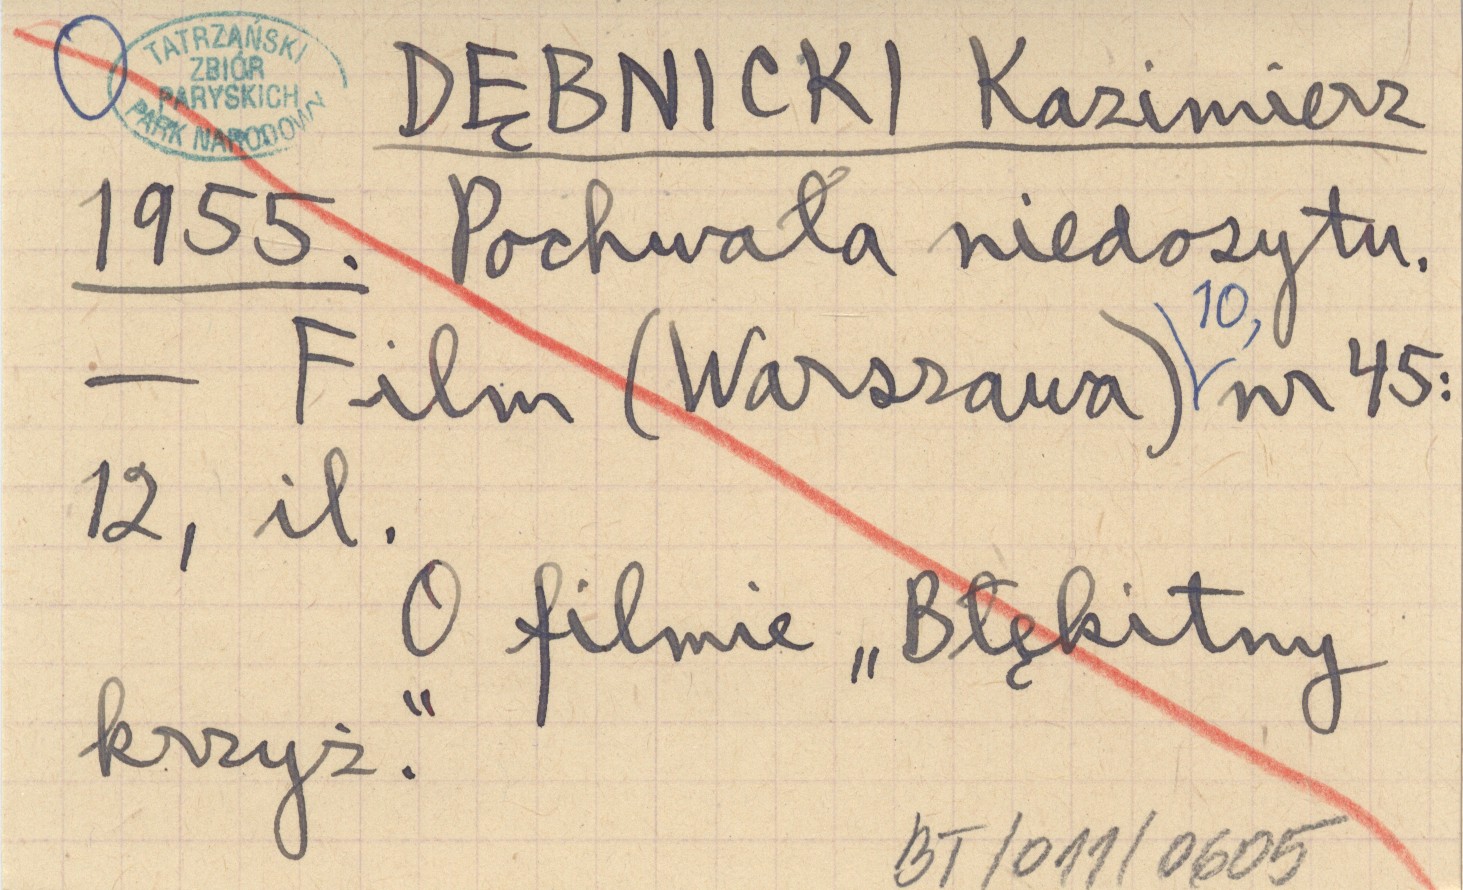 TATRZAŃSKI
ZBIÓR
PARYSKICH
PARK NARODOWY
DĘBNICKI Kazimierz
1955. Pochwała niedosytu.
10,
— Film (Warszawa) nr 45:
12, il.
O filmie „Błękitny
krzyż.”
BT/011/0605